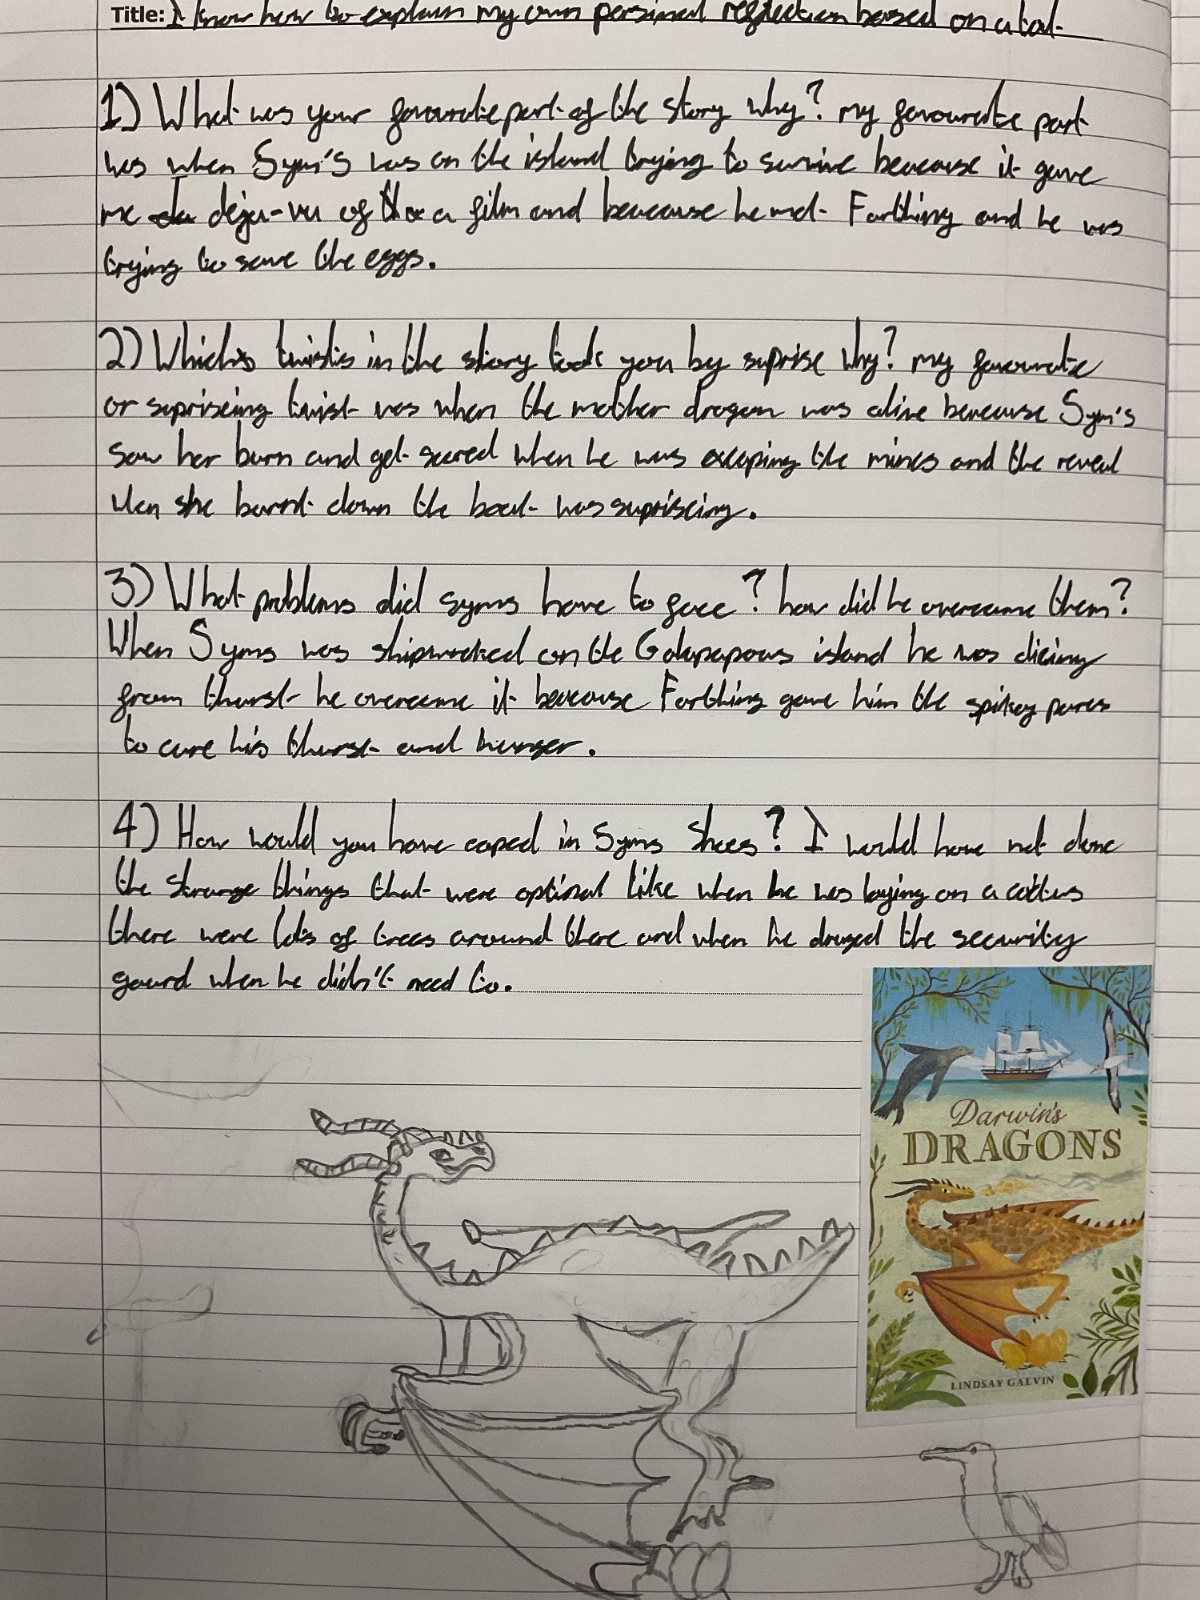 Title: I know how to explain my own persinal reflection based on a
1) What was your favourate part of the story why? my favourate part
was when Sym's was on the island trying to survive beacause it gave
me deja-vu of a film and beacause he met Farthing and he was
trying to save the eggs.
2) Which twists in the story took you by suprise why? my favourate
or supriseing twist was when the mother dragon was alive beacause Sym's
saw her burn and get scared when he was escaping the mines and the reveal
when she burnt down the boat was supriseing.
3) What problems did syms have to face? how did he overcame them?
When Syms was shipwrecked on the island he was dieing
from thurst he overcame it beacause Farthing gave him the spikey pares
to cure his thurst and hunger.
4) How would you have coped in Syms Shoes? I would have not done
the strange things that were optinal like when he was laying on a
there were lots of trees around there and when he the security
gaurd when he didn't need to.
Darwin's
DRAGONS
LINDSAY GALVIN